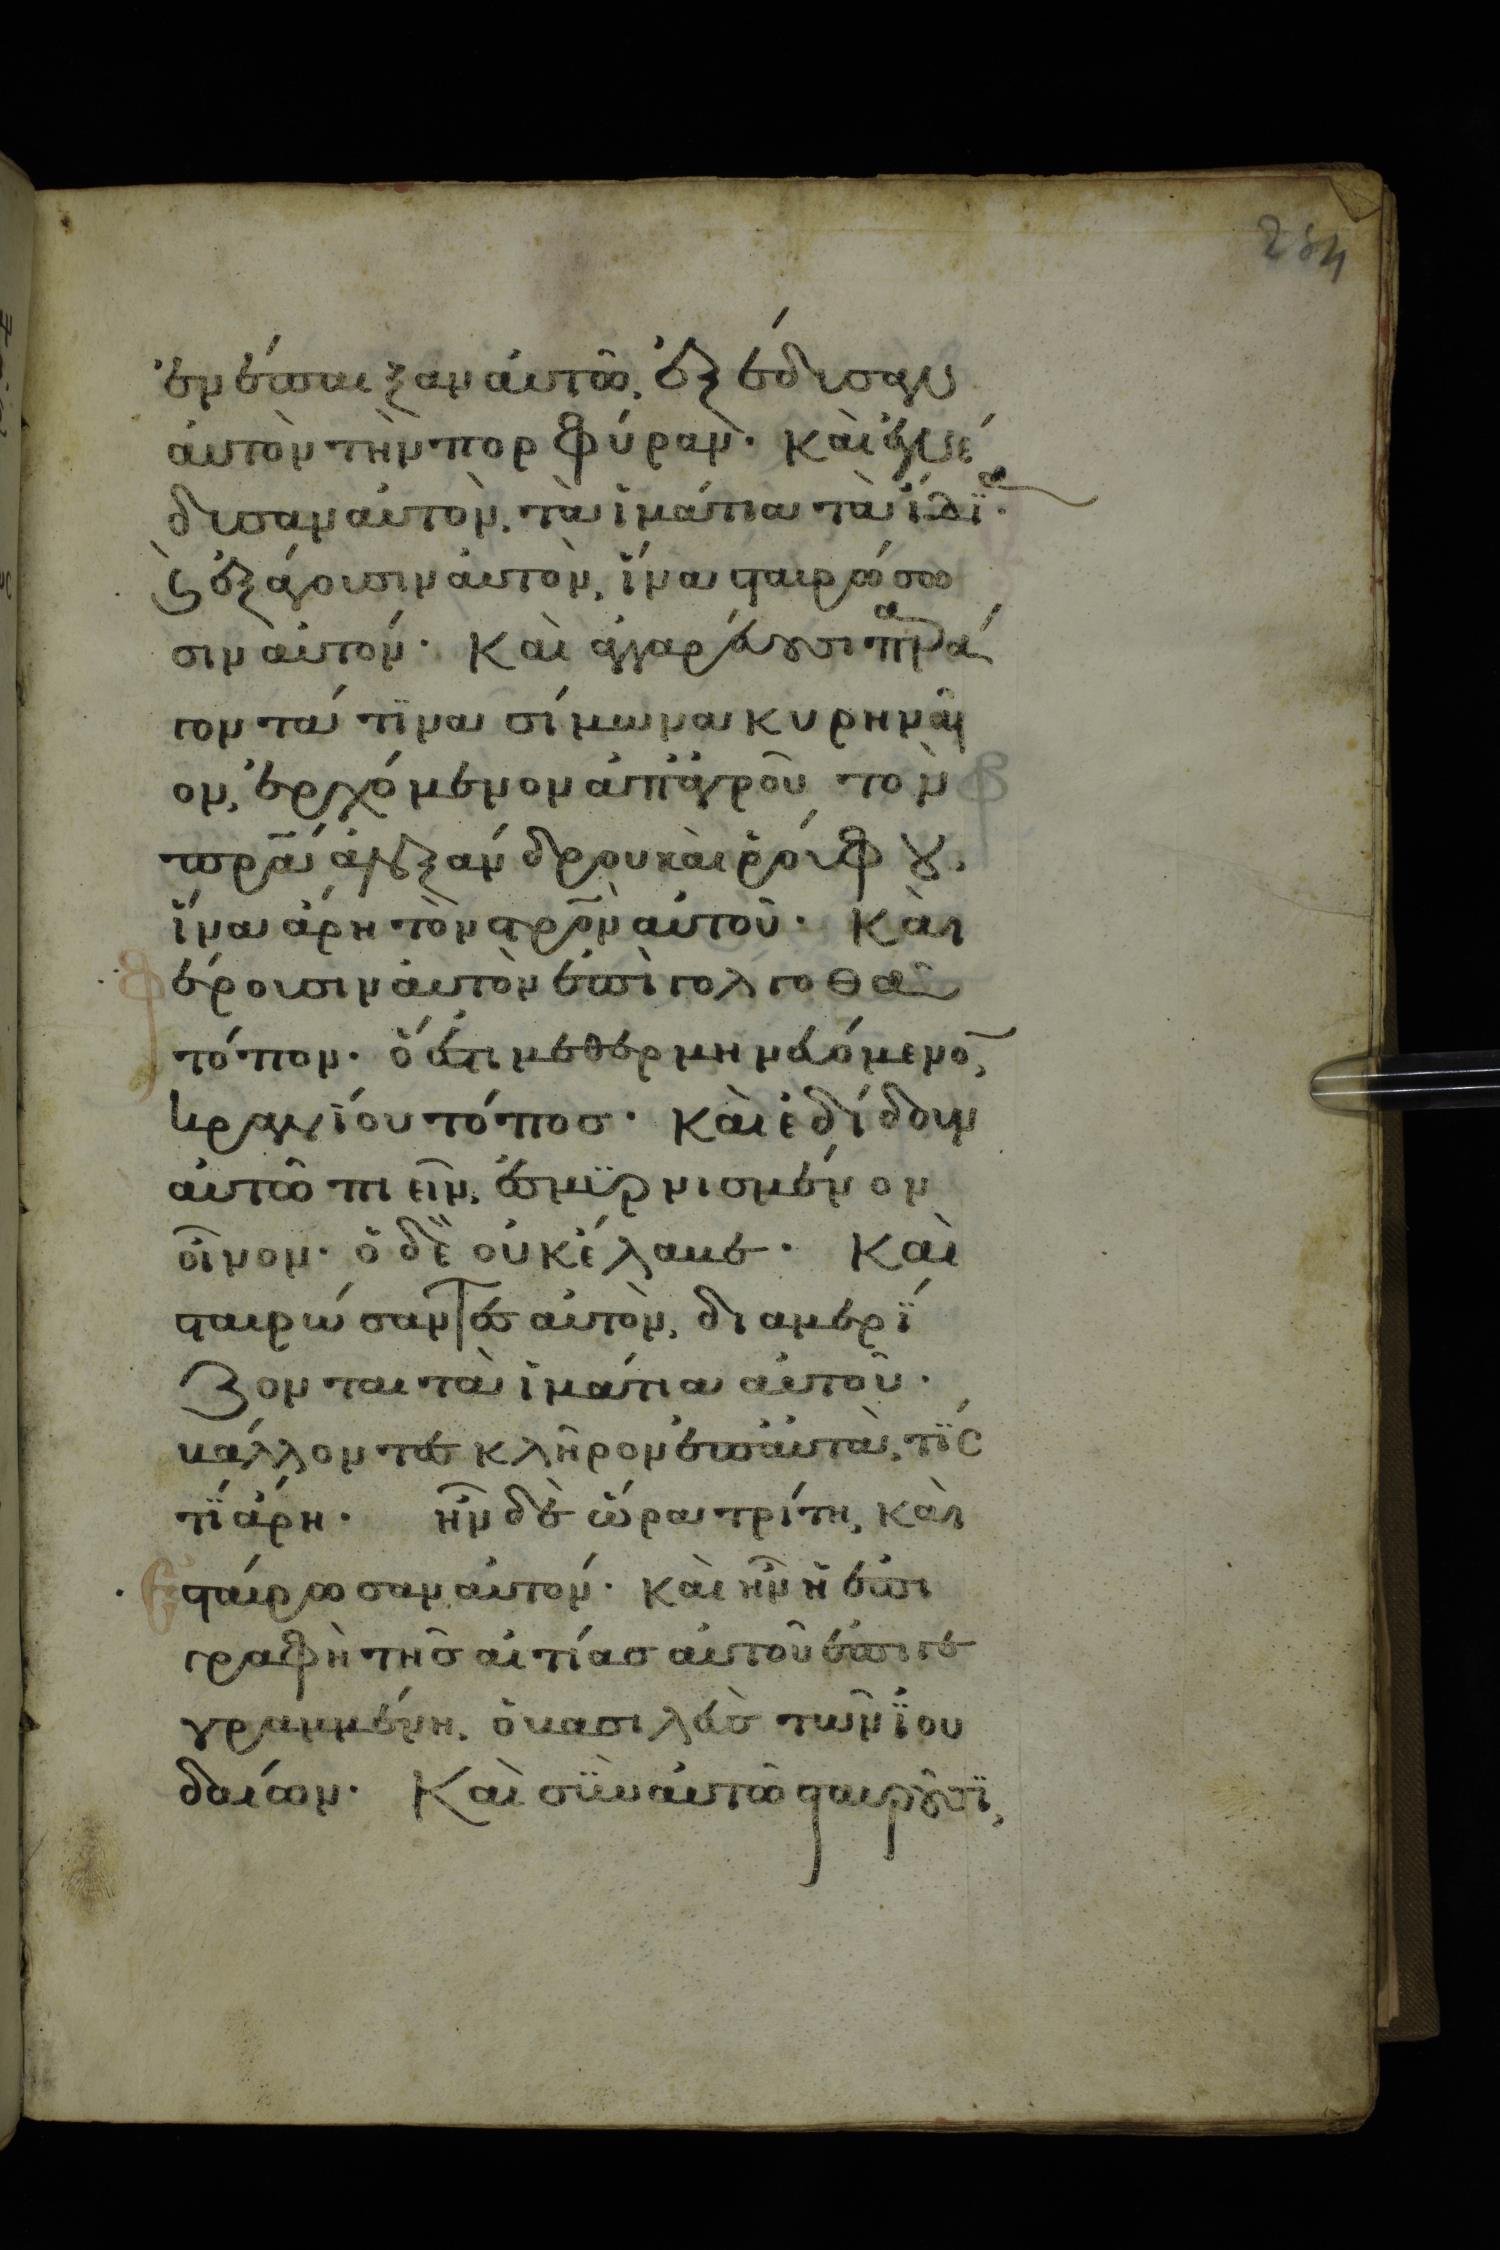 254
ἐνέπαιξαν αὐτῶ, ἐξέδυσαν
αὐτὸν τὴν πορφύραν· καὶ ἐνέ
δυσαν αὐτὸν, τὰ ἱμάτια τὰ ἴδϊα·
ϗ ἐξάγουσιν αὐτὸν, ἵνα σταυρώσω
σιν αὐτόν· Καὶ ἀγγαρεύουσι παρά
γοντά τϊνα σίμωνα κυρηναῖ
ον, ἐρχόμενον ἀπ' ἀγροῦ τὸν
πρ̅α ἀλεξάνδρου καὶ ῥούφου.
ἵνα ἄρη τὸν στρο̅ν αὐτοῦ· Καὶ
φέρουσιν αὐτὸν ἐπὶ γολγοθᾶ
τόπον· ὅ ἐστι μεθερμηνευόμενο̅,
κρανίου τόπος· Καὶ ἐδίδουν
αὐτῶ πιεῖν, ἐσμϋρνισμένον
οἶνον· ὁ δὲ οὐκ ἔλαβε· Καὶ
σταυρώσαντες αὐτὸν, διαμερΐ
ζονται τὰ ἱμάτια αὐτοῦ·
βάλλοντες κλῆρον ἐπ' αὐτὰ, τΐς
τΐ ἄρη· ἦν δὲ ὥρα τρίτη, καὶ
ἐσταύρωσαν αὐτόν· καὶ ἦν ἡ ἐπι
γραφὴ τῆς αἰτίας αὐτοῦ ἐπιγε
γραμμένη, ὁ βασιλεὺς τῶν ϊου
δαίων· Καὶ σὺν αὐτῶ σταυροῦσϊ,